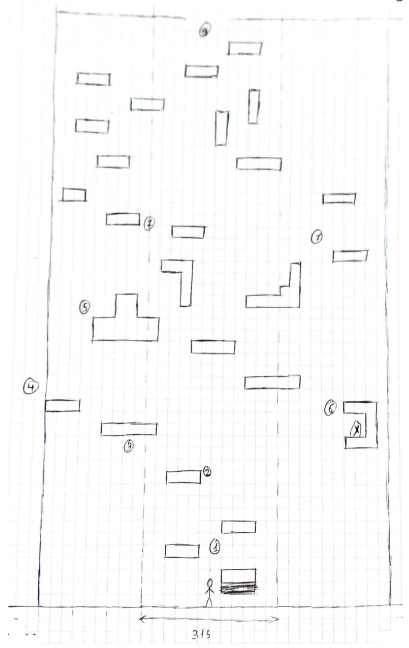 8
7
7
5
4
6
X
3
2
1
315